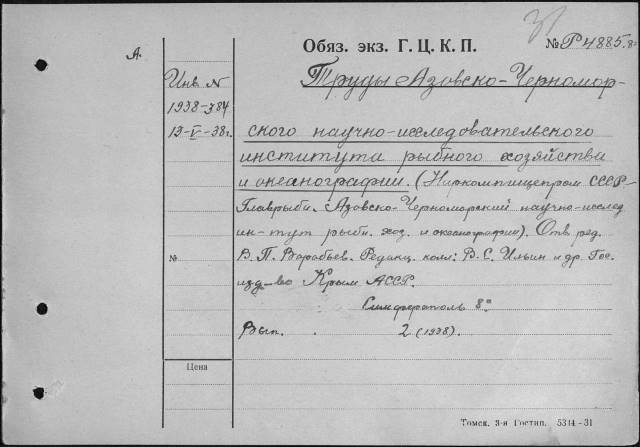 Обяз. экз. Г. Ц. К. П.
№ Р4885.8°
А
Инв №
1938-784
13-V-38г.
Труды Азовско-Черномор-
ского научно-исследовательского
института рыбного хозяйства
и океанографии. (Наркомпищепром СССР
Главрыба. Азовско-Черноморский научно-исслед
ин-тут рыбн. хоз. и океанографии). Отв. ред.
№
В. П. Воробьев. Редакц. колл: В. С. Ильин и др. Гос
изд-во Крым. АССР.
Симферополь 8°
Вып. . 2 (1938).
Цена
Томск. 3-я Гостип. 5314-31